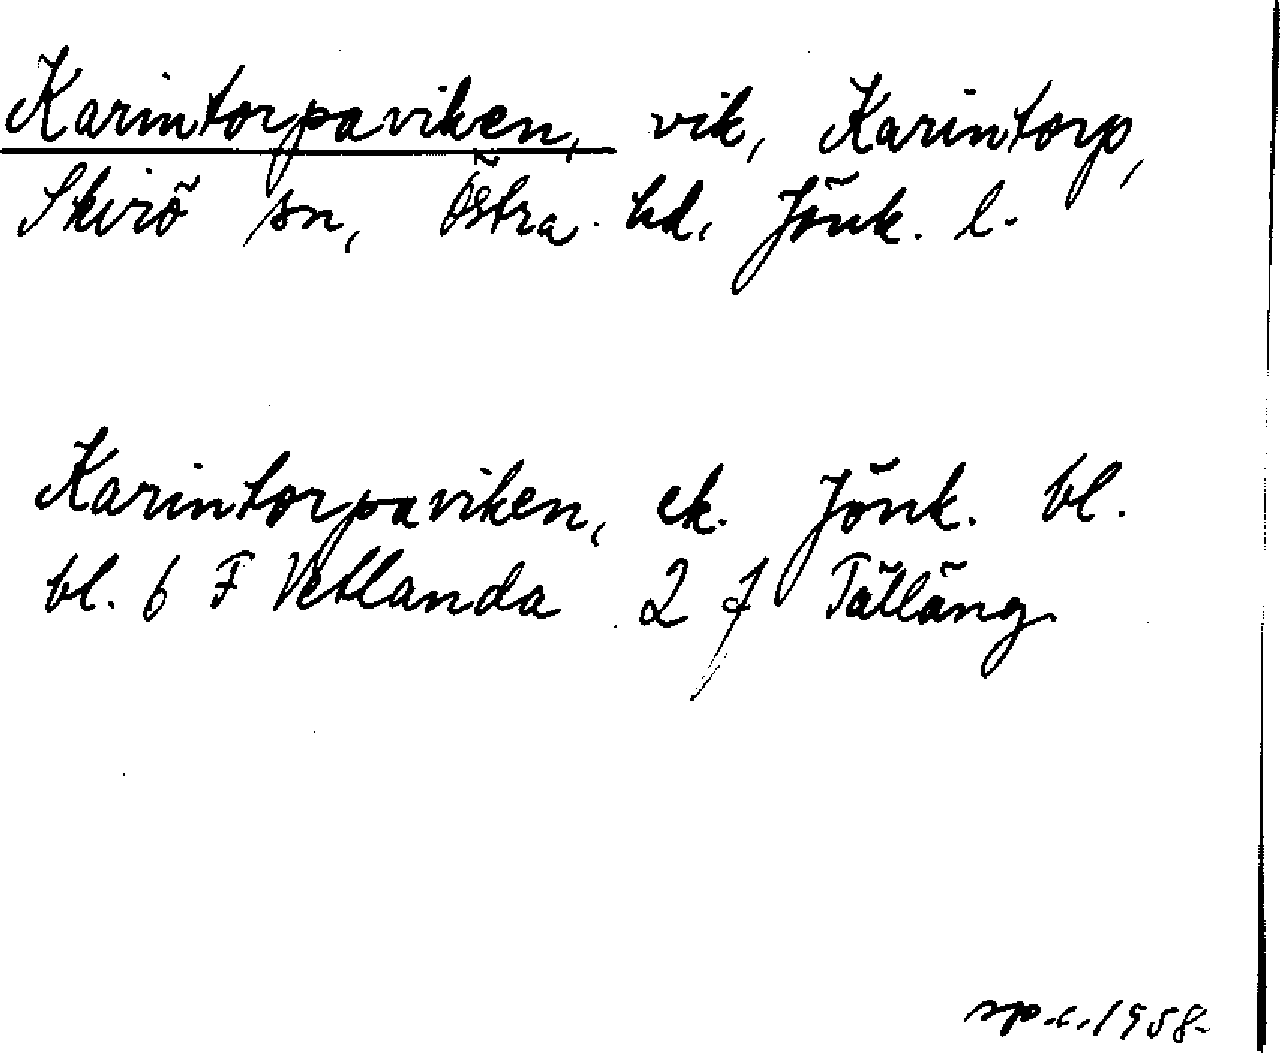 Karintorpaviken, vik, Karintorp,
Skirö sn, Östra hd, Jönk. l.
Karintorpaviken, ek. Jönk. bl.
bl. 6 F Vetlanda 2 f Tälläng
sp.c. 1958